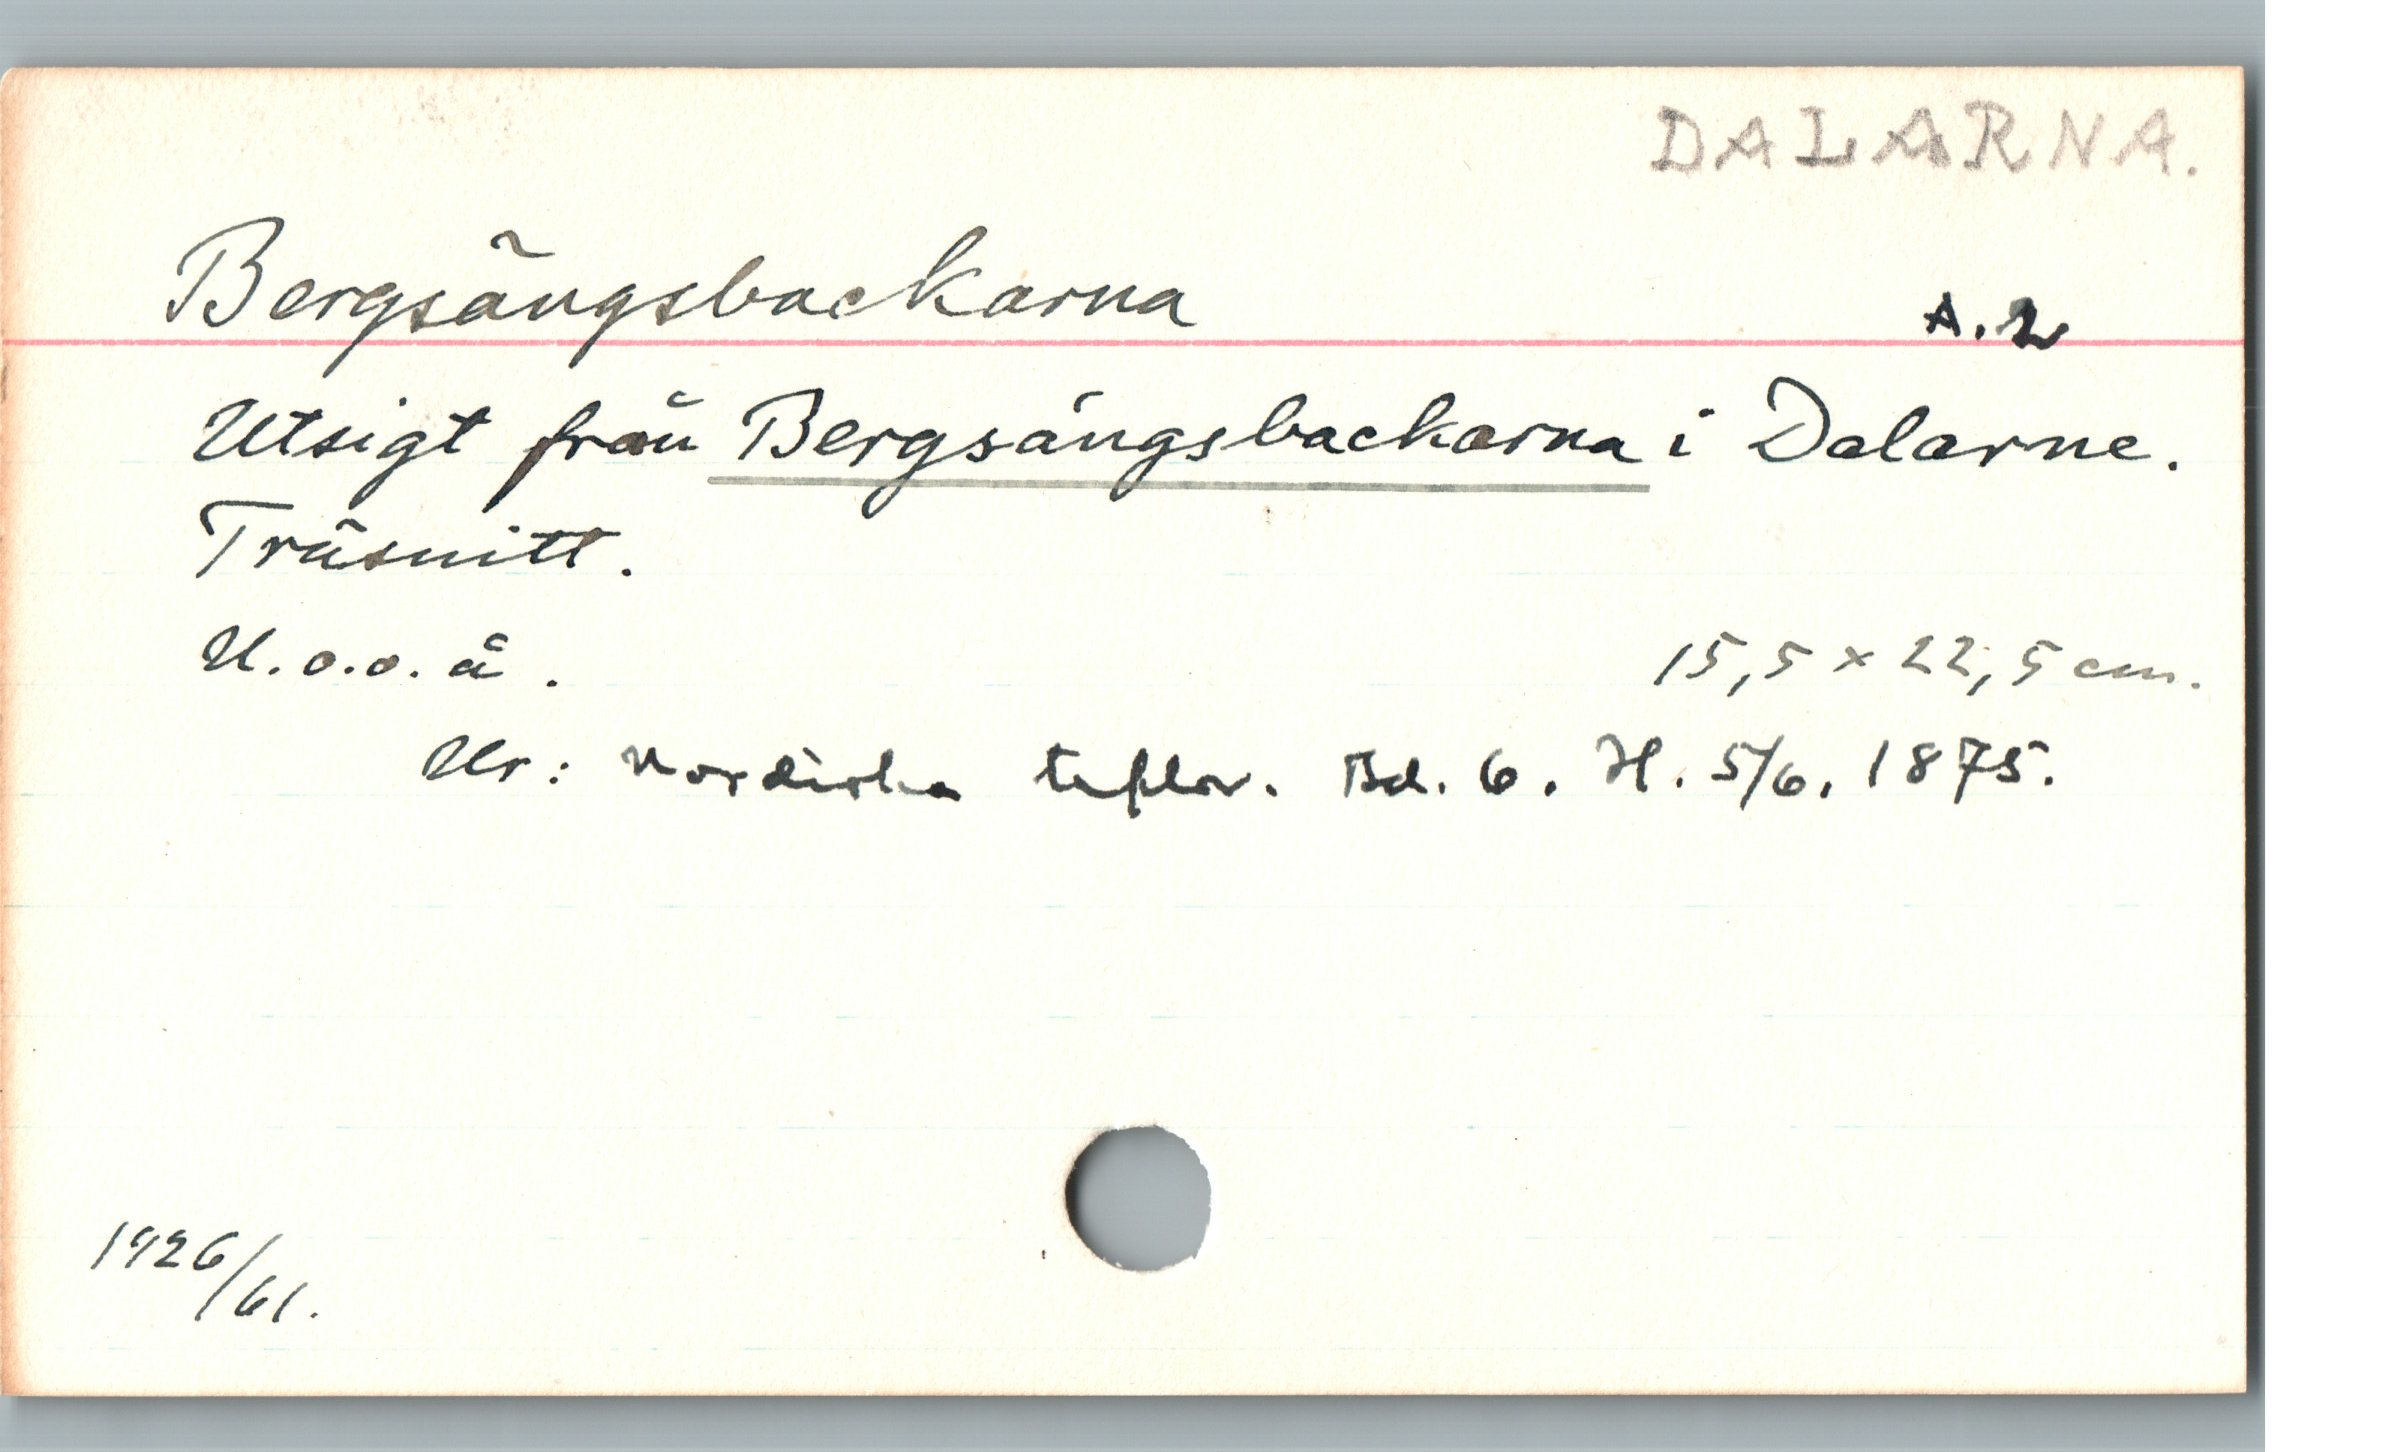 DALARNA.
Bergsängsbackarna
A. 2
Utsigt från Bergsängsbackarna i Dalarne.
Träsnitt.
U. o. o. å.
15,5 × 22,5 cm.
Ur: Nordiska taflor. Bd. 6. H. 5/6. 1875.
1926/61.